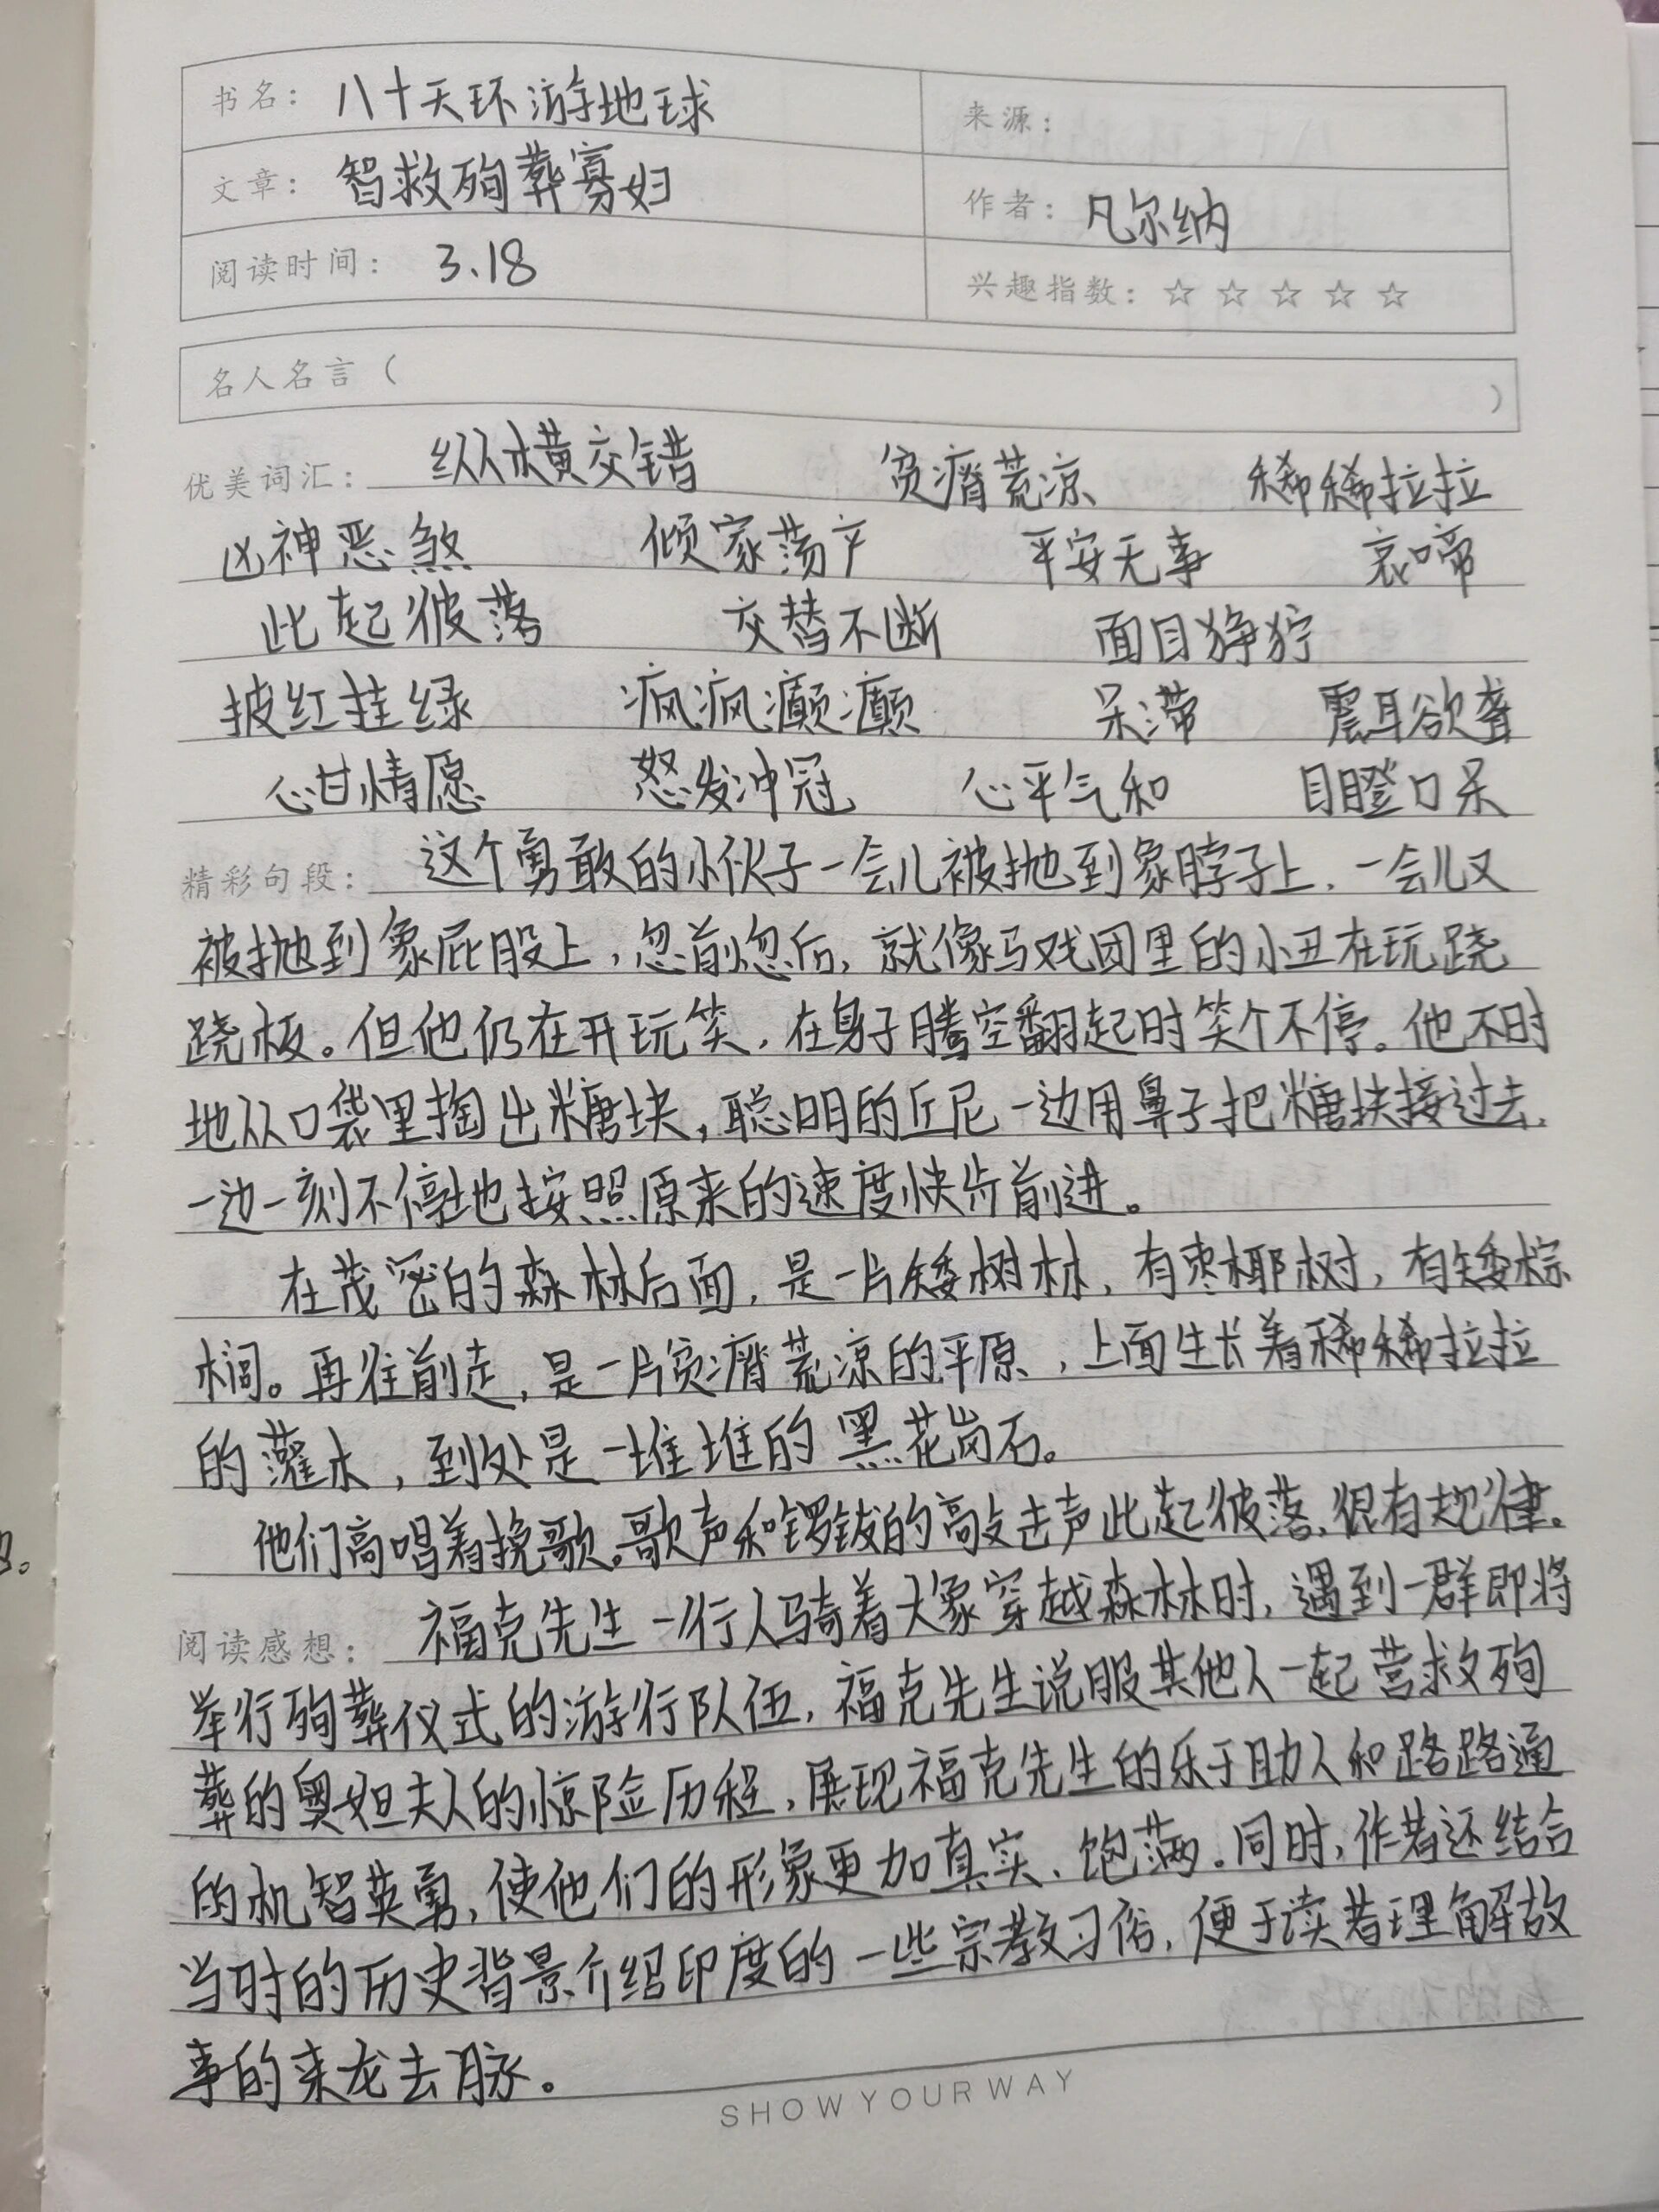 书名： 八十天环游地球
来源：
文章： 智救殉葬寡妇
作者： 凡尔纳
阅读时间： 3.18
兴趣指数：☆ ☆ ☆ ☆ ☆
名人名言（ ）
优美词汇： 纵横交错 贫瘠荒凉 稀稀拉拉
凶神恶煞 倾家荡产 平安无事 哀啼
此起彼落 交替不断 面目狰狞
披红挂绿 疯疯癫癫 呆滞 震耳欲聋
心甘情愿 怒发冲冠 心平气和 目瞪口呆
精彩句段： 这个勇敢的小伙子一会儿被抛到象脖子上，一会儿又
被抛到象屁股上，忽前忽后，就像马戏团里的小丑在玩跷
跷板。但他仍在开玩笑，在身子腾空翻起时笑个不停。他不时
地从口袋里掏出糖块，聪明的丘尼一边用鼻子把糖块接过去，
一边一刻不停地按照原来的速度快步前进。
在茂密的森林后面，是一片矮树林，有枣椰树，有矮棕
榈。再往前走，是一片贫瘠荒凉的平原，上面生长着稀稀拉拉
的灌木，到处是一堆堆的黑花岗石。
他们高唱着挽歌。歌声和锣钹的敲击声此起彼落，很有规律。
阅读感想： 福克先生一行人骑着大象穿越森林时，遇到一群即将
举行殉葬仪式的游行队伍，福克先生说服其他人一起营救殉
葬的奥妲夫人的惊险历程，展现福克先生的乐于助人和路路通
的机智英勇，使他们的形象更加真实、饱满。同时，作者还结合
当时的历史背景介绍印度的一些宗教习俗，便于读者理解故
事的来龙去脉。
SHOW YOUR WAY